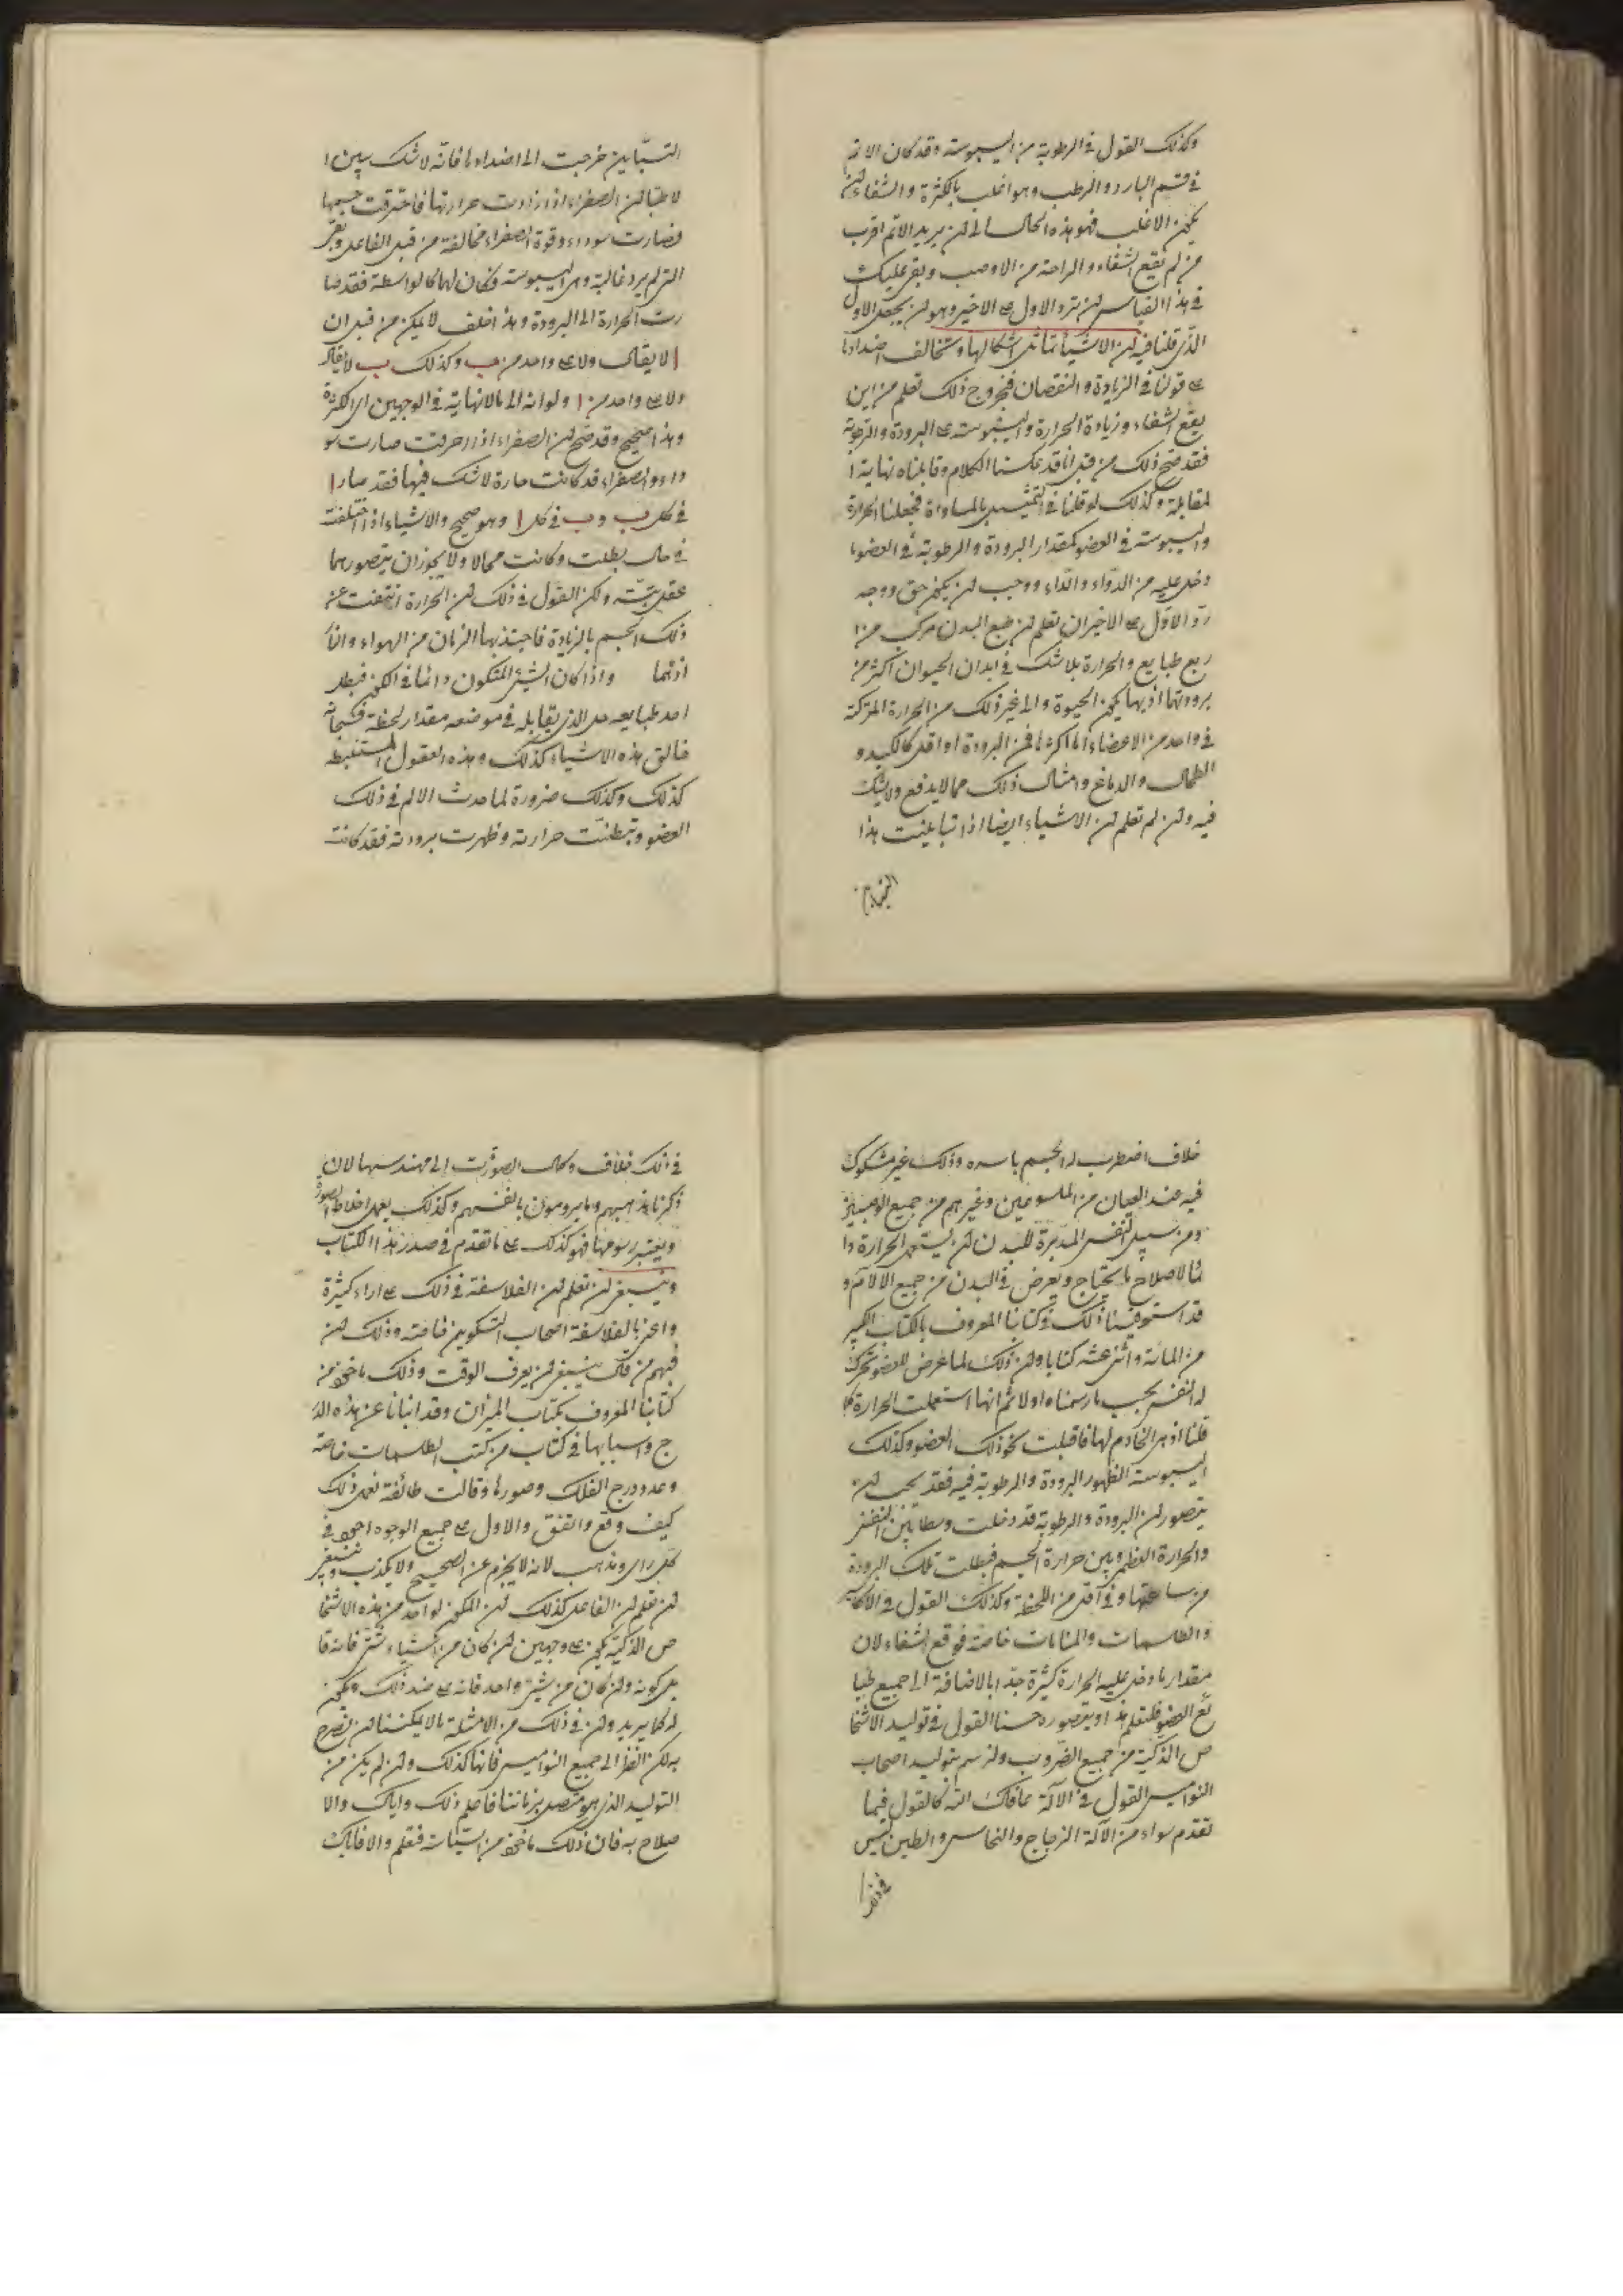 وكذلك القول في الرطوبة من اليبوسة وقد كان الاتم
في قسم البارد والرطب وهو اغلب بالكثرة والشفاء لن
يمكن الاغلب فهو هذه الحال الى لن يريد الاتم اقرب
من لم يقع الشفاء والراحة من الاوصب وبقى عليك
في هذا القياس لن ترد الاول على الاخير وهو لن يجعل الاول
الذي قلنا فيه لن الاشياء تماثل اشكالها وتخالف اضدادها
على قولنا في الزيادة والنقصان فبخروج ذلك تعلم من اين
يقع الشفاء وزيادة الحرارة واليبوسة على البرودة والرطوبة
فقد صح ذلك من قبل انا قد عكسنا الكلام وقابلناه نهاية ا
لمقابلة وكذلك لو قلنا في التمثيل بالمساواة فجعلنا الحرارة
واليبوسة في العضو كمقدار البرودة والرطوبة في العضو ما
دخل عليه من الدواء والداء ووجب لن يكون حق ووجه
رد الاول على الاخير ان تعلم لن طبع البدن مركب من ا
ربع طبايع والحرارة بلا شك في ابدان الحيوان اكثر من
برودتها اذ بها يكون الحيوة والى غير ذلك من الحرارة المتركبة
في واحد من الاعضاء اما اكثرها من البرودة او اقل كالكبد و
الطحال والدماغ وامثال ذلك مما لا يدفع ولا يشك
فيه ولن لم تعلم لن الاشياء ايضا اذا تباينت هذا
التباين
التباين خرجت الى اضدادها فانه لا شك بين ا
لاطبا لن الصفراء اذا زادت حرارتها فاحترقت جسمها
فصارت سوداء وقوة الصفراء مخالفة من قبل الفاعل وبقى
التي لم يرد غالبة وهى اليبوسة فكان لها كالواسطة فقد صا
رت الحرارة الى البرودة وهذا خلف لا يمكن من قبل ان
ا لا يقال ولا على واحد من ب وكذلك ب لا يقال
ولا على واحد من ا ولو انه الى ما لا نهاية في الوجهين اى الكثرة
وهذا صحيح وقد صح لن الصفراء اذا احرقت صارت سو
داء والصفراء قد كانت حارة لا شك فيها فقد صار ا
في كل ب وب في كل ا وهو صحيح والاشياء اذا اختلفت
في حال بطلت وكانت محالا ولا يجوز ان يتصورهما
عقل بتة ولكن القول في ذلك لن الحرارة انتفت عن
ذلك الجسم بالزيادة فاجتذبها الزمان من الهواء والنا
اذ هما واذا كان الشيء المتكون دائما في الكون فبطل
احد طبايعه حل الذي يقابله في موضعه مقدار لحظة فسبحان
خالق هذه الاشياء كذلك وهذه العقول المستنبطة
كذلك وكذلك ضرورة لما حدث الالم في ذلك
العضو وتبطنت حرارته وظهرت برودته فقد كانت
خلاف اضطرب له الجسم باسره وذلك غير مشكوك
فيه عند العيان من الملسوعين وغيرهم من جميع الوصبين
ومن سبيل النفس المدبرة للبدن لن يستعمل الحرارة دا
ئما لاصلاح ما يحتاج ويعرض في البدن من جميع الالام و
قد استوفينا ذلك في كتابنا المعروف بالكتاب الكبير
من المائة واثنى عشر كتابا ولن ذلك لما عرض للعضو تحرك
له النفس بحسب ما رسمناه اولا ثم انها استعملت الحرارة كما
قلنا اذ هى الخادم لها فاقبلت نحو ذلك العضو وكذلك
اليبوسة الظهور البرودة والرطوبة فيه فقد يجب لن
يتصور لن البرودة والرطوبة قد دخلت وسطا بين النفس
والحرارة العظمى وبين حرارة الجسم فبطلت تلك البرودة
من ساعتها وفي اقل من اللحظة وكذلك القول في الاكاسير
والطلسمات والمنامات خاصة فوقع الشفاء لان
مقدار ما دخل عليه الحرارة كثيرة جدا بالاضافة الى جميع طبا
ئع العضو فلتعلم هذا وتتصوره حسنا القول في توليد الاشخا
ص الذكية من جميع الضروب ولنرسم بتوليد اصحاب
النواميس القول في الآلة عافاك الله كالقول فيما
تقدم سواء من الآلة الزجاج والنحاس والطين ليس
في ذلك
في ذلك خلاف وكمال الصورت الى مهندسها لان
ذكرنا مذاهبهم وما يرومون بانفسهم وكذلك يعمل اخلاط الصورة
ويعتبر رسومها فهو كذلك على ما تقدم في صدر هذا الكتاب
وينبغى لن تعلم لن الفلاسفة في ذلك على اراء كثيرة
واعنى بالفلاسفة اصحاب التكوين خاصة وذلك لن
فيهم من قال ينبغى لن يعرف الوقت وذلك ماخوذ من
كتابنا المعروف بكتاب الميزان وقد انبانا عن هذه الد
رج واسبابها في كتاب من كتب الطلسمات خاصة
وعدد درج الفلك وصورها وقالت طائفة نعمل ذلك
كيف وقع واتفق والاول على جميع الوجوه احوط في
كل راى ومذهب لانه لا يخرج عن الصحيح ولا يكذب وينبغى
لن تعلم لن الفاعل كذلك لن المكون لواحد من هذه الاشخا
ص الذكية يكون على وجهين لن كان من اشياء شتى فانه قا
بل كونه ولن كان من شيء واحد فانه على ضد ذلك ويكون
له كما يريد ولن في ذلك من الامثلة ما لا يمكننا لن نصرح
به لكن انظر الى جميع النواميس فانها كذلك ولن لم يكن من
التوليد الذي هو متصل بزماننا فاعلم ذلك واياك والا
صلاح به فان ذلك ماخوذ من السيئات فقلم والا فاياك